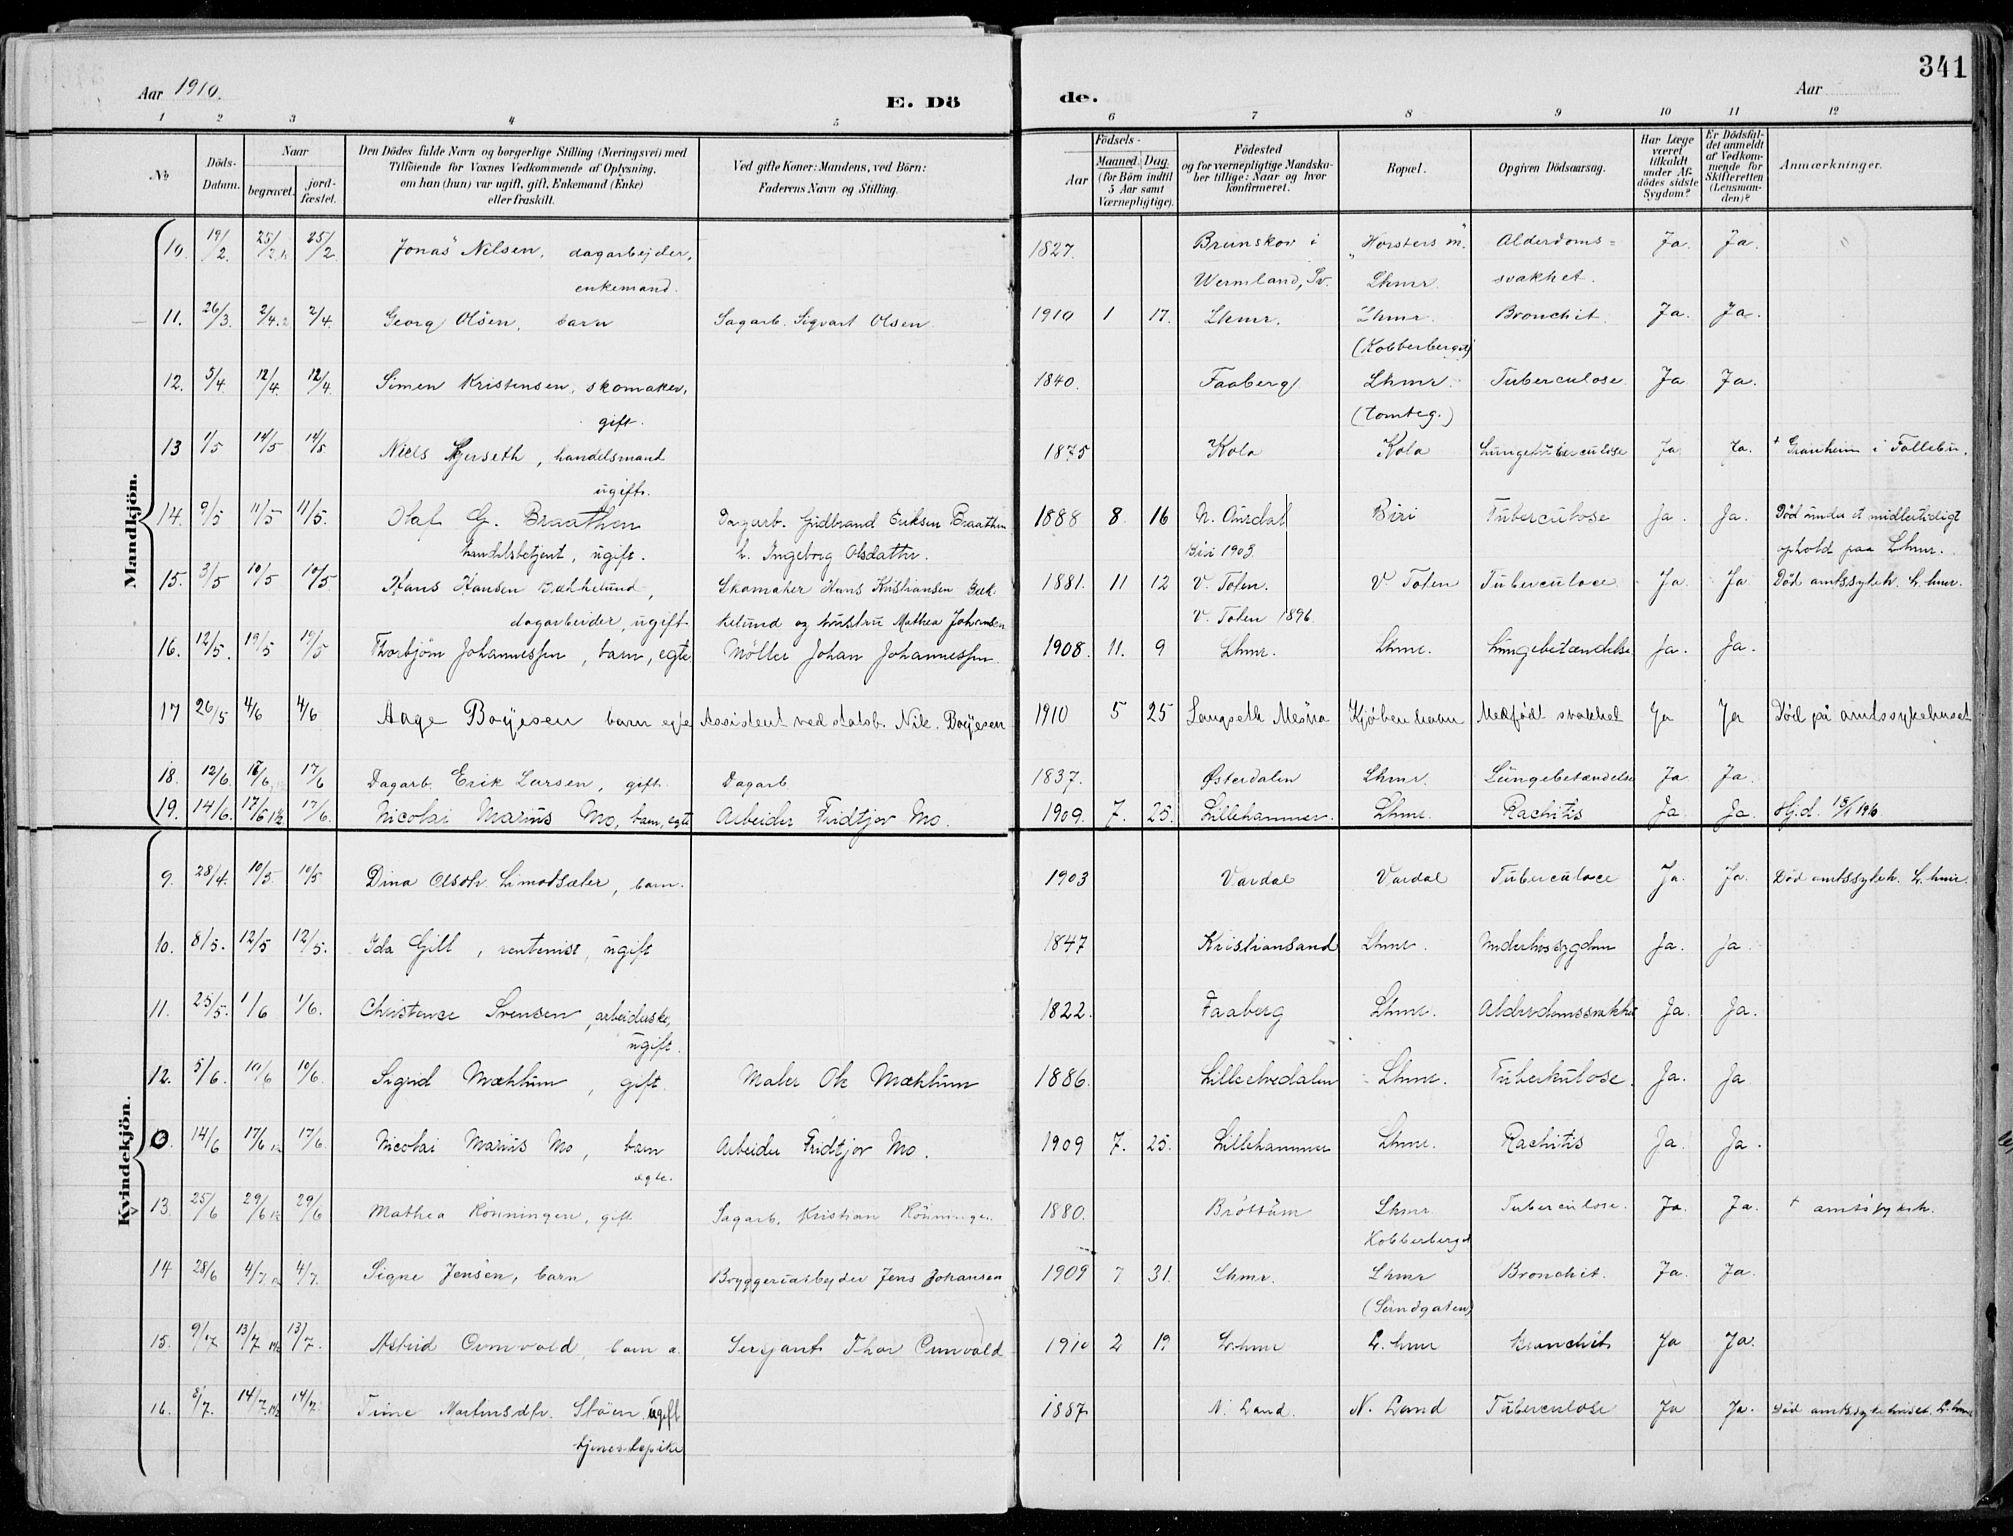 341
Aar 1910.
E. Dö
de.
Aar
1 2 3 4 5 6 7 8 9 10 11 12
No
Döds-Datum.
Naar
begravet.
jord-fæstet.
Den Dödes fulde Navn og borgerlige Stilling (Næringsvei) med
Tilföiende för Voxnes Vedkommende af Oplysning,
om han (hun) var ugift, gift, Enkemand (Enke)
eller fraskilt.
Ved gifte Koner: Mandens, ved Börn:
Faderens Navn og Stilling.
Födsels-
Aar
Maaned. Dag.
(for Börn indtil
5 Aar samt
Værnepligtige).
Födested
og for værnepligtige Mandska-
ber tillige: Naar og hvor
konfirmeret.
Bopæl.
Opgiven Dödsaarsag.
Har Læge
været
tilkaldt
under Af-
dödes sidste
Sygdom?
Er Dödsfal-
det anmeldt
af Vedkom-
mende for
Skifteretten
(Lensman-
den)?
Anmærkninger.
Mandkjön.
10. 19/2. 25/2 25/2 Jonas Nilsen, dagarbejder, 1827. Brunskov i "Horsters m." Alderdoms- Ja. Ja.
enkemand. Wermland, Sv. Lhmr. svakhet.
11. 26/3. 2/4. 2/4. Georg Olsen, barn Sagarb. Sigvart Olsen 1910 1 17. Lhmr. Lhmr. Bronchit. Ja. Ja.
(Kobberberget)
12. 5/4 12/4. 12/4. Simen Kristensen, skomaker, 1840. Faaberg Lhmr. Tuberculose Ja Ja.
gift. (tomteg.)
13 1/5 14/5 14/5 Niels , handelsmand 1875 Kola Kola Lungetuberculose Ja Ja. + Granheim i Follebu.
ugift.
14. 9/5 11/5 11/5. Olaf G. Braathen Dagarb. Gudbrand Eriksen Braathen 1888 8 16 N. Aurdal Biri Tuberculose Ja. Ja. Död under et midlertidigt
handelsbetjent, ugift. h. Ingeborg Olsdatter. Biri 1903 ophold paa Lhmr.
15. 3/5 10/5 10/5 Hans Hansen Bækkelund, Skomaker Hans Kristiansen Bæk- 1881. 11 12 V. Toten. V. Toten Tuberculose Ja Ja Död amtssykeh. L.hmr.
dagarbeider, ugift kelund og hustru Mathea Johansen V. Toten 1896
16. 12/5. 19/5 19/5 Thorbjörn Johannessen, barn, egte Möller Johan Johannessen. 1908. 11. 9 Lhmr. Lhmr. Lungebetændelse Ja. Ja.
17 26/5 4/6 4/6 Aage Boyesen barn egte Assistent ved statsb. Nik. Boyesen 1910 5 25 Langseth Mesna Kjöbenhavn Medfödt svakhet Ja Ja Död på amtssykehuset
18. 12/6. 17/6 Dagarb. Erik Larsen, gift. Dagarb. 1837. Østerdalen Lhmr. Lungebetændelse Ja Ja.
19. 14/6. 17/6 17/6. Nicolai Marius Mo, barn, egte Arbeider Fridtjov Mo. 1909. 7. 25. Lillehammer. Lhmr. Rachitis Ja. Ja. Hj.d.
Kvindekjön.
9. 28/4. 10/5. 10/5 Dina Olsdtr. Limotsæter, barn. 1903 Vardal Vardal Tuberculose Ja. Ja. Död amtssykeh. L.hmr.
10. 8/5. 12/5 12/5. Ida Gill, rentenist, ugift 1847 Kristiansand Lhmr. Underlivssygdom Ja. Ja.
11. 25/5. 1/6 1/6. Christence Svensen, arbeiderske, 1822. Faaberg Lhmr. Alderdomssvakhet Ja. Ja.
ugift.
12. 5/6. 10/6 10/6. Sigrid Mæhlum, gift. Maler Ole Mæhlum 1886. Lilleelvedalen Lhmr. Tuberkulose. Ja. Ja
0. 14/6 17/6 17/6. Nicolai Marius Mo, barn Arbeider Fridtjov Mo. 1909 7. 25. Lillehammer Lhmr. Rachitis Ja. Ja.
egte.
13. 25/6 29/6 29/6 Mathea Rönningen, gift Sagarb. Kristian Rönningen 1880. Bröttum Lhmr Tuberculose. Ja. Ja. + amtssykeh.
Kobberberget
14 28/6 4/7 4/7. Signe Jensen, barn Bryggeriarbejder Jens Johansen 1909 7 31. Lhmr. Lhmr Bronchit. Ja. Ja.
(Söndgaten)
15. 9/7 13/7 13/7. Astrid Ormvold, barn Sersjant Thor Ormvold 1910 2 19 L.hmr L.hmr Bronchit Ja Ja.
16. 8/7. 14/7. 14/7. Trine Martinsdtr. Stöen ugift 1887 N. Land. N. Land Tuberculose Ja Ja. Död amtssykehuset L.hmr
tjenestepike